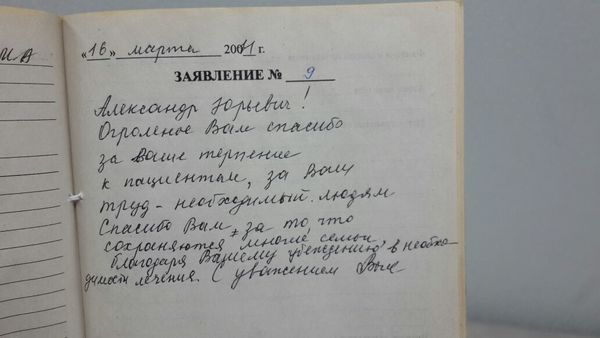 «16» марта 2004 г.
ЗАЯВЛЕНИЕ № 9
Александр Юрьевич!
Огромное Вам спасибо
за Ваше терпение
к пациентам, за Ваш
труд - необходимый людям
Спасибо Вам, за то, что
сохраняются многие семьи
благодаря Вашему убеждению, в необхо-
димости лечения. С уважением